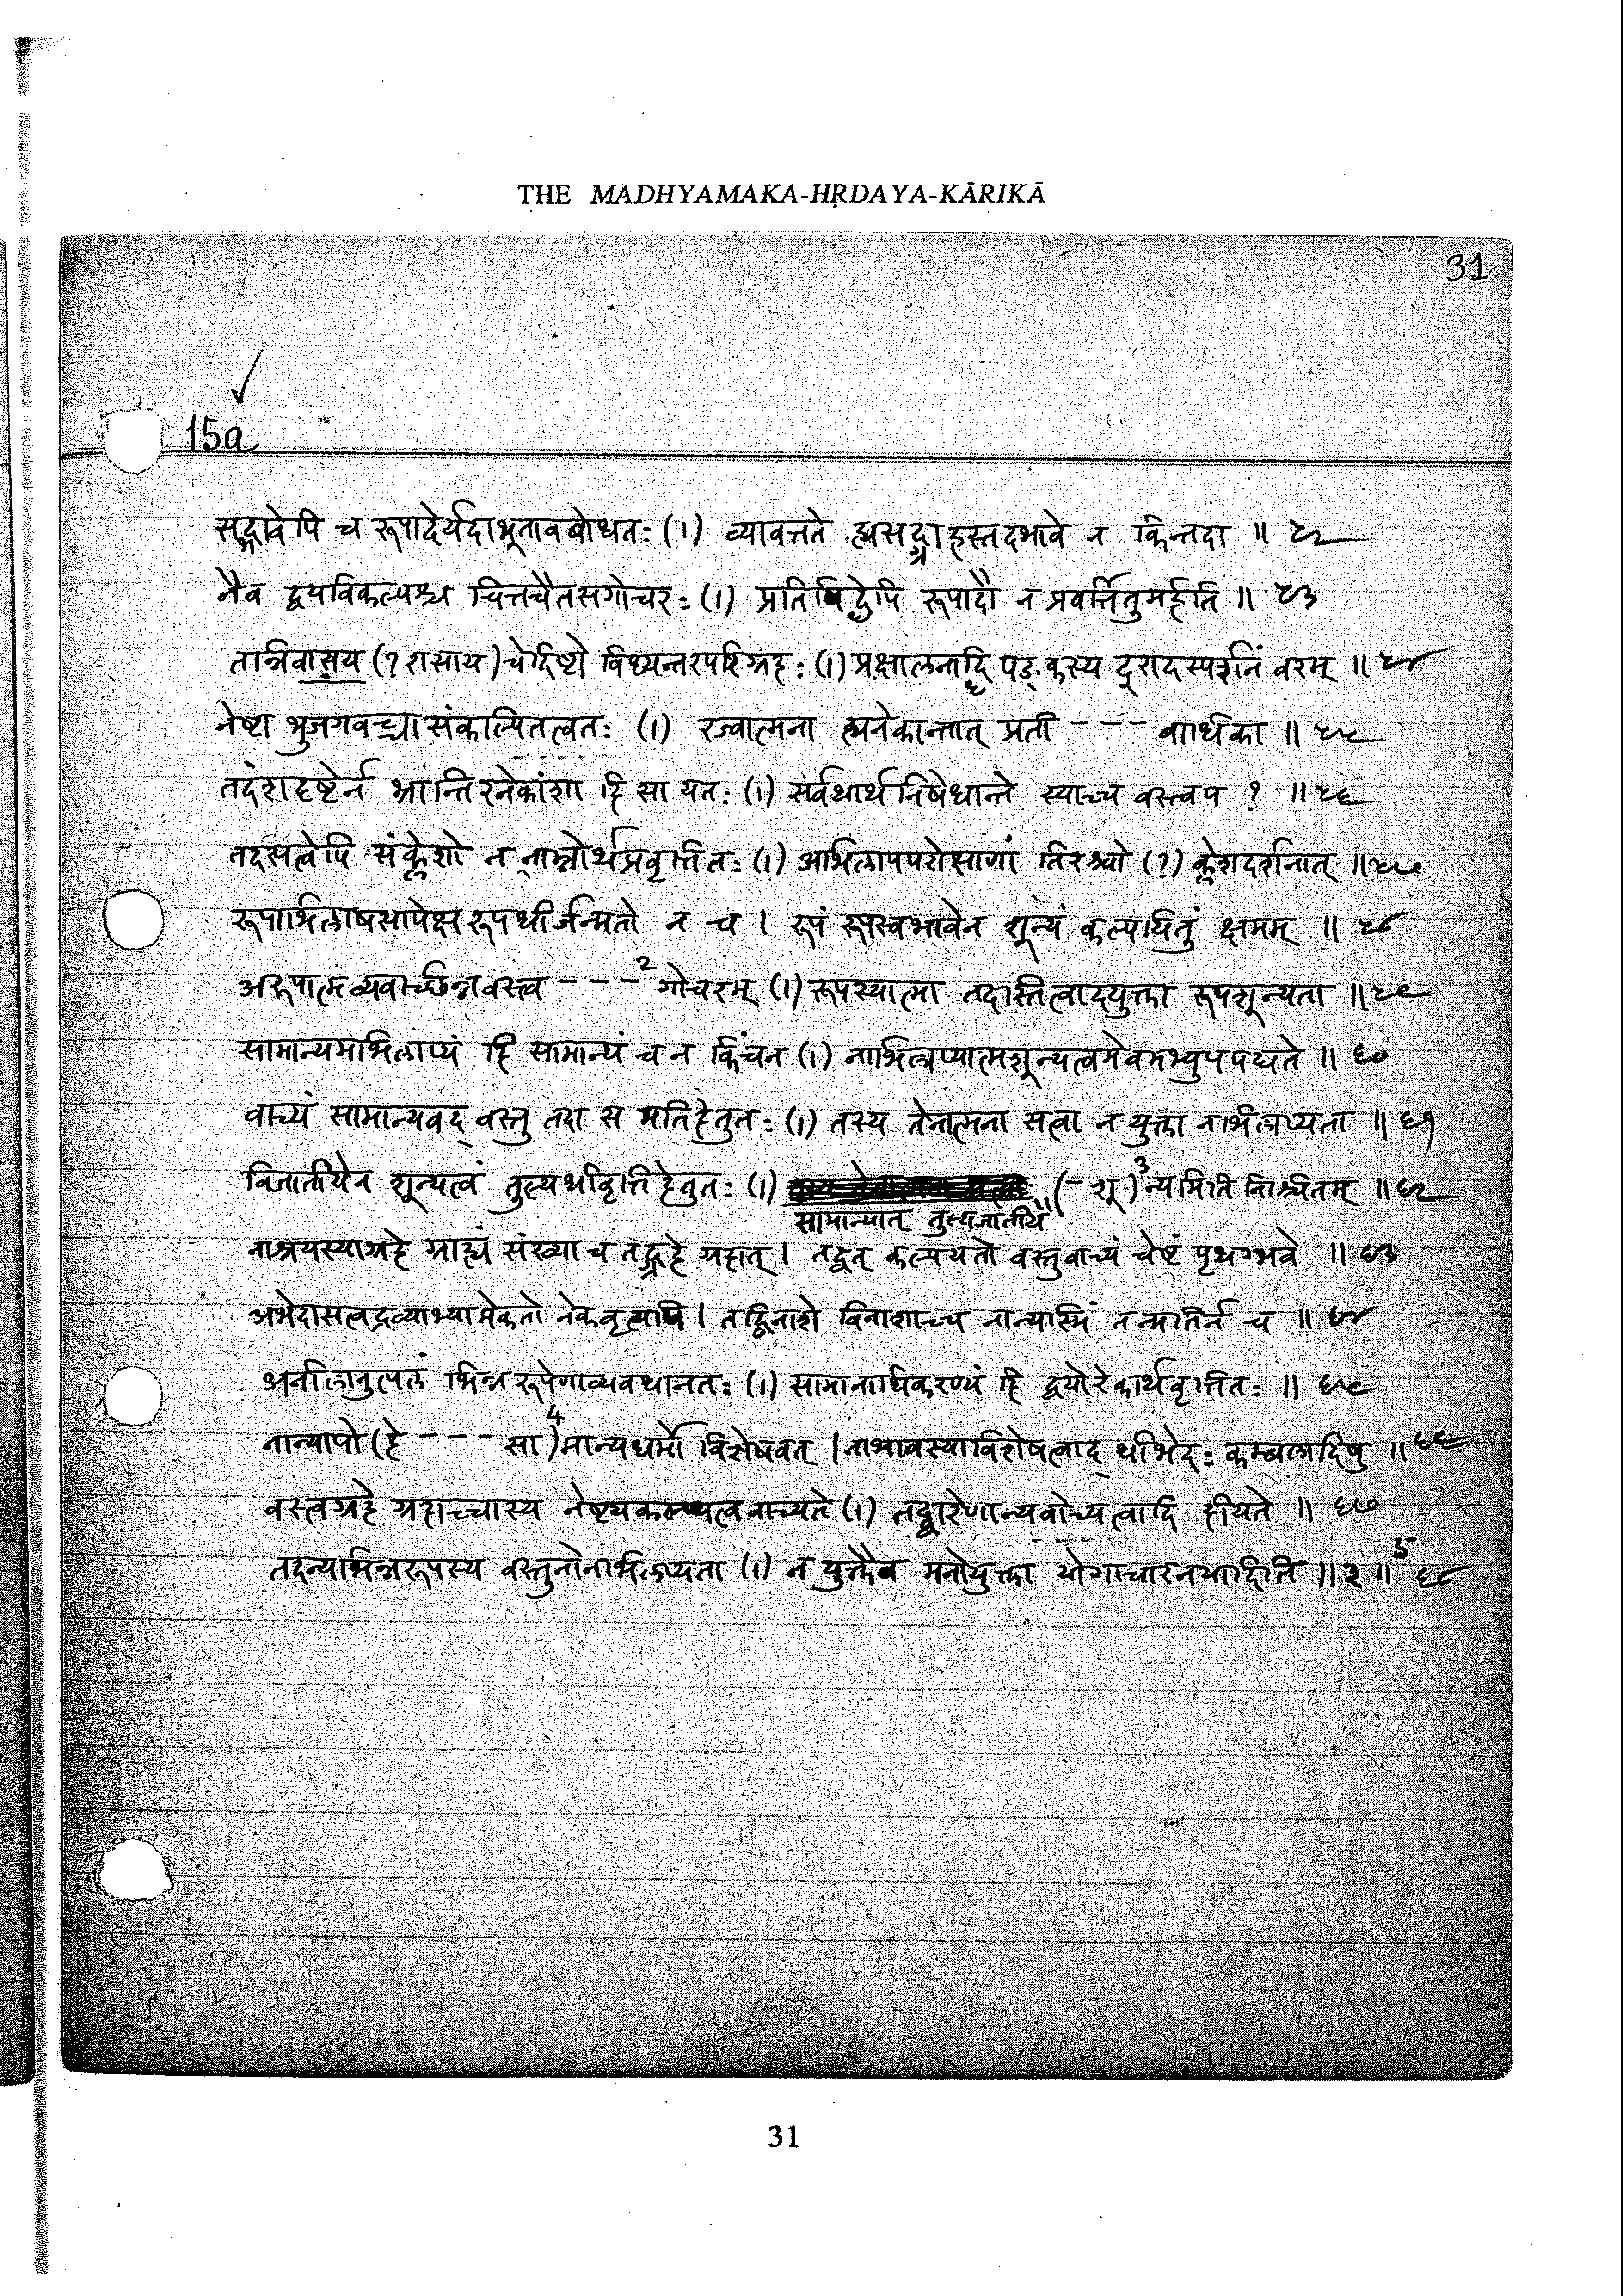 THE MADHYAMAKA-HṚDAYA-KĀRIKĀ
31
15a
सद्भावेपि च रूपादेर्यदाभूतावबोधतः (।) व्यावर्त्तते ह्यसद्ग्राहस्तदभावे न किन्तदा ॥ ५२
नैव द्वयविकल्पश्च चित्तचैतसगोचरः (।) प्रतिषिद्धेपि रूपादौ न प्रवर्त्तितुमर्हति ॥ ५३
तान्निवासय (? रासाय) चेदिष्टो विध्यन्तरपरिग्रहः (।) प्रक्षालनाद्धि पङ्कस्य दूरादस्पर्शनं वरम् ॥ ५४
नेष्टा भुजगवच्चासंकल्पितत्वतः (।) रज्वात्मना त्यनेकान्तात् प्रती - - - वार्थिका ॥ ५५
तदंशदृष्टेर्न भ्रान्तिरनेकांशा हि सा यतः (।) सर्वथार्थनिषेधान्ते स्याच्च वस्त्वप ? ॥ ५६
तदसत्वेपि संक्लेशो न नाम्नोर्थप्रवृत्तितः (।) अभिलापपरोक्षाणां तिरश्चो (?) क्लेशदर्शनात् ॥ ५७
रूपाभिलाषसापेक्षरूपधीर्जन्मतो न च । रूपं रूपस्वभावेन शून्यं कल्पयितुं क्षमम् ॥ ५८
अरूपात्मव्यवच्छिन्नवस्त्व - - - 2 गोचरम् (।) रूपस्यात्मा तदास्तित्वादयुक्ता रूपशून्यता ॥ ५९
सामान्यमभिलाप्यं हि सामान्यं च न किंचन (।) नाभिलप्यात्मशून्यत्वमेवमभ्युपपद्यते ॥ ६०
वाच्यं सामान्यवद् वस्तु तदा स मतिहेतुतः (।) तस्य तेनात्मना सत्वा न युक्ता नाभिलाप्यता ॥ ६१
विजातीयेन शून्यत्वं तुल्यर्थावृत्तिहेतुतः (।) (- शू)3 न्यमिति निश्चितम् ॥ ६२
सामान्यात् तुल्यजातीये"
नाश्रयस्याग्रहे ग्राह्यं संख्या च तद्ग्रहे ग्रहात् । तद्वत् कल्पयतो वस्तुवाच्यं चेष्टं पृथग्भवे ॥ ६३
अभेदासत्वद्रव्याभ्यामेकतो नेकवृत्यापि । तद्विनाशे विनाशाच्च नान्यास्मिं तन्मतिर्न च ॥ ६४
अनीलानुत्पलं भिन्नरूपेणाव्यवधानतः (।) सामानाधिकरण्यं हि द्वयोरेकार्थवृत्तितः ॥ ६५
नान्यापो (हे - - - सा)4 मान्यधर्मो विशेषवत् । नाभावस्याविशेषत्वाद् धीभेदः कम्बलादिषु ॥ ६६
वस्त्वग्रहे ग्रहाच्चास्य नेष्टयकल्प्यत्ववाच्यते (।) तद्द्वारेणान्यवोच्यत्वादि हीयते ॥ ६७
तदन्याभिन्नरूपस्य वस्तुनोनाभिलप्यता (।) न युक्तैव मतोयुक्ता योगाचारनयादिति ॥ ३ ॥5 ६८
31